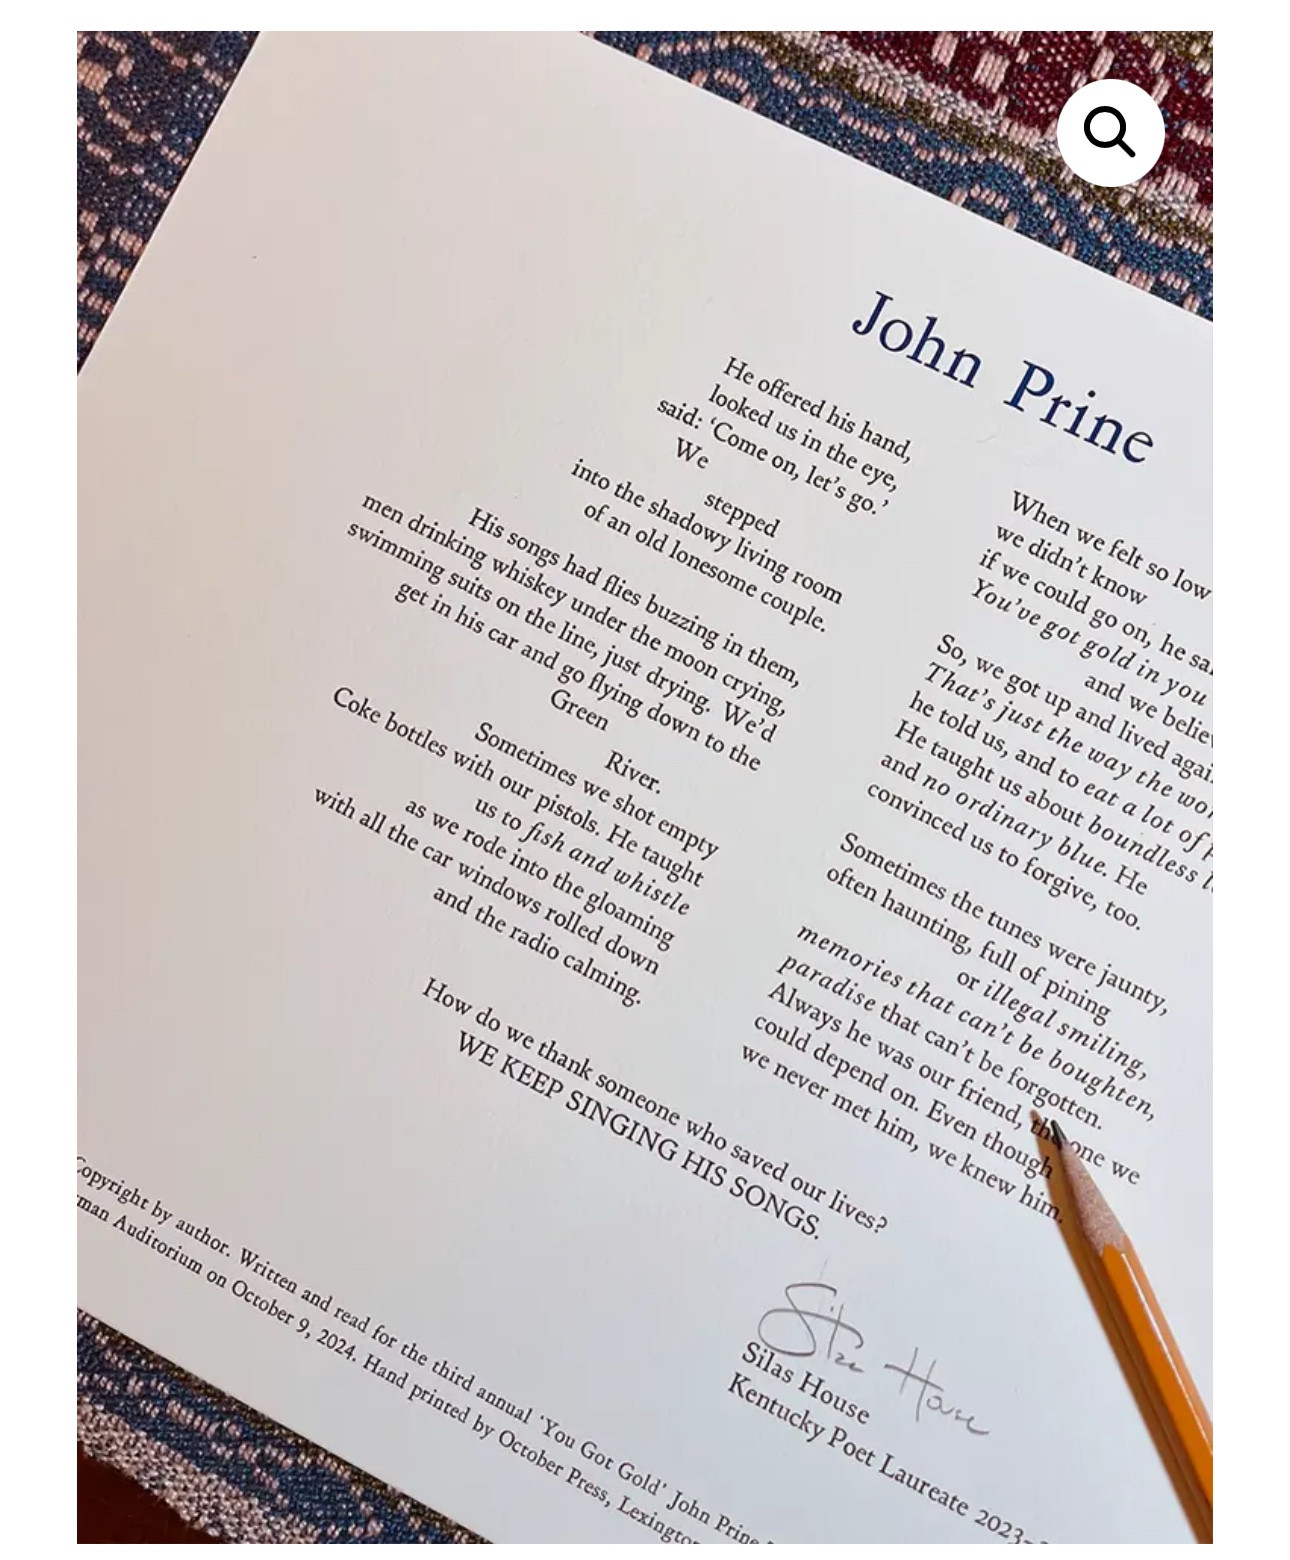 John Prine
He offered his hand,
looked us in the eye,
said: ‘Come on, let’s go.’
We
stepped
into the shadowy living room
of an old lonesome couple.
His songs had flies buzzing in them,
men drinking whiskey under the moon crying,
swimming suits on the line, just drying. We’d
get in his car and go flying down to the
Green
River.
Sometimes we shot empty
Coke bottles with our pistols. He taught
us to fish and whistle
as we rode into the gloaming
with all the car windows rolled down
and the radio calming.
When we felt so low
we didn’t know
if we could go on, he
You’ve got gold in you
and we
So, we got up and lived
That’s just the way the
he told us, and to eat a lot of
He taught us about boundless
and no ordinary blue. He
convinced us to forgive, too.
Sometimes the tunes were jaunty,
often haunting, full of pining
or illegal smiling,
memories that can’t be boughten,
paradise that can’t be forgotten.
Always he was our friend, the one we
could depend on. Even though
we never met him, we knew him.
How do we thank someone who saved our lives?
WE KEEP SINGING HIS SONGS.
Silas House
Silas House
Kentucky Poet Laureate 2023-
Copyright by author. Written and read for the third annual ‘You Got Gold’ John Prine
Auditorium on October 9, 2024. Hand printed by October Press,